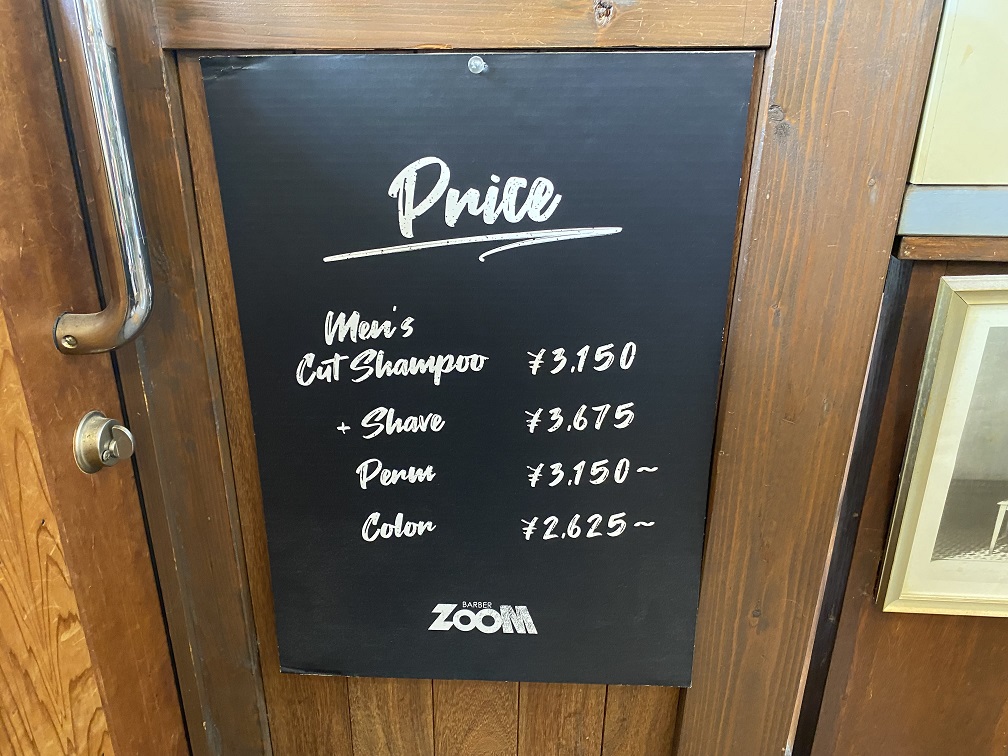 Price
Men's
Cut Shampoo ¥3.150
+ Shave ¥3.675
Perm ¥3.150~
Color ¥2.625~
BARBER
ZOOM